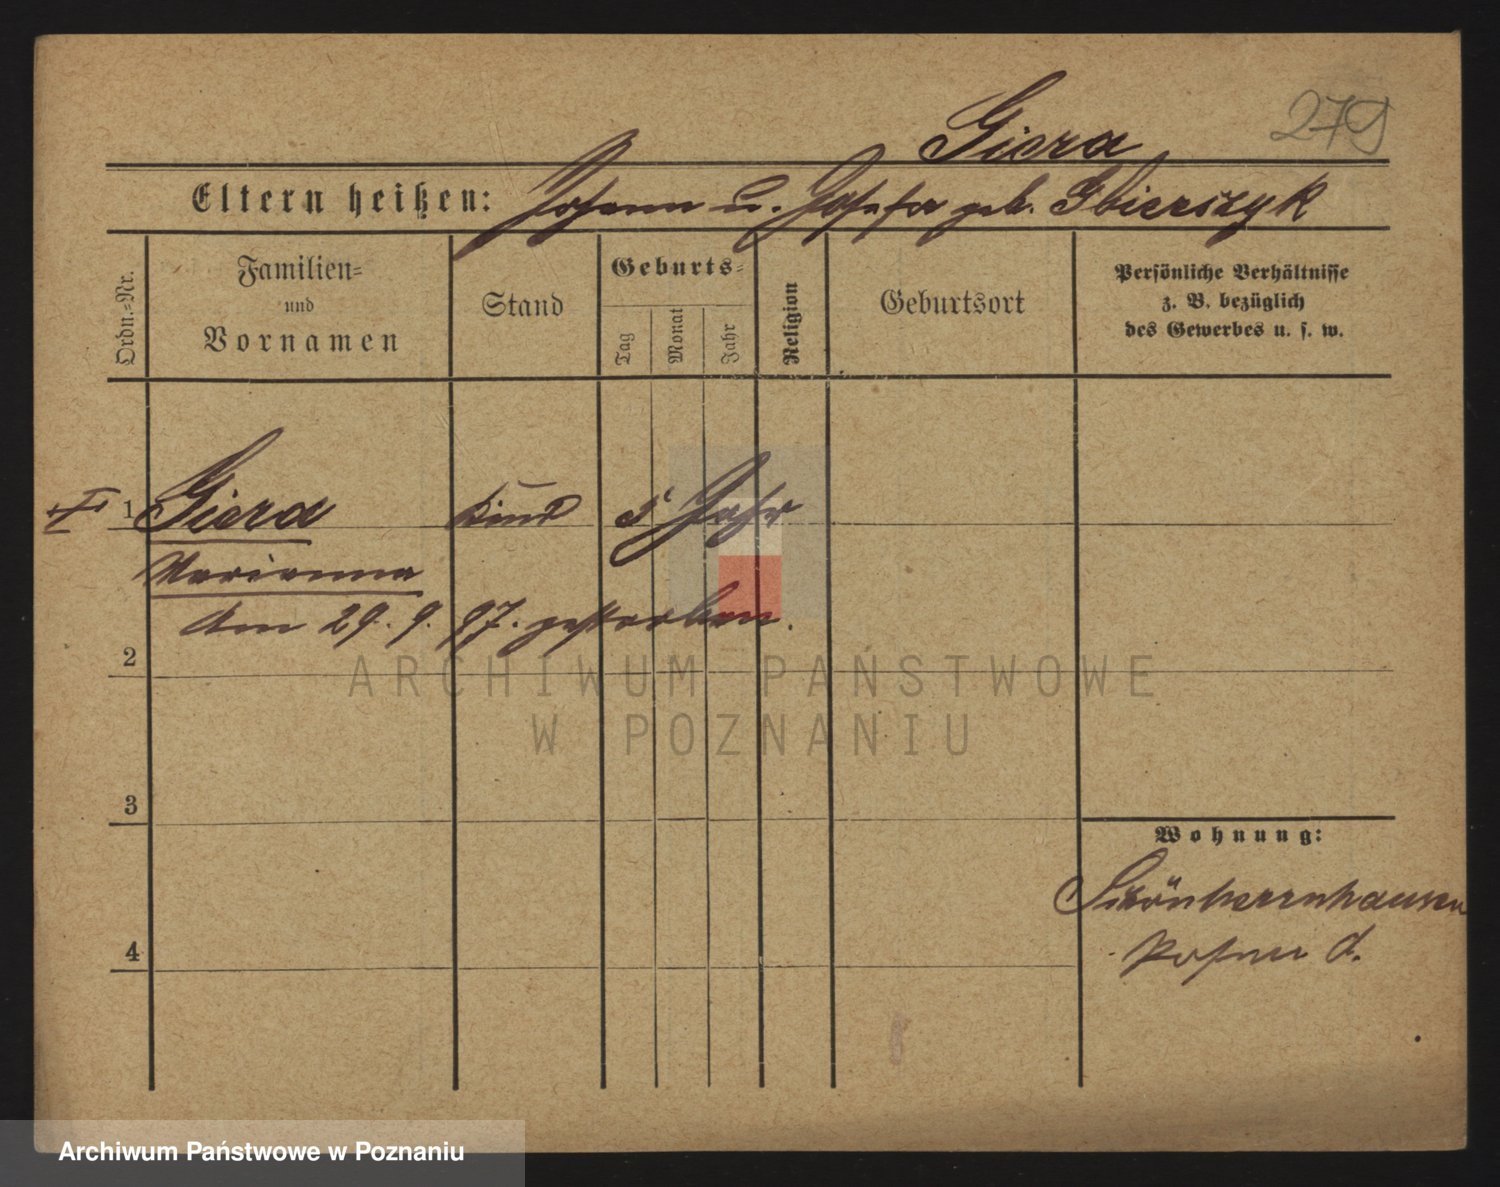 279
Giera
Eltern heißen: Johann u. Josefa geb. Gbierszyk
Ordn.-Nr.
Familien-
und
Vornamen
Stand
Geburts-
Tag
Monat
Jahr
Religion
Geburtsort
Persönliche Verhältnisse
z. B. bezüglich
des Gewerbes u. s. w.
1 Giera Kind 5 Jahr
Marianna
Am 29. 9. 97. gestorben.
2
3
4
Wohnung:
Schönherrnhausen
Posen
ARCHIWUM PAŃSTWOWE
W POZNANIU
Archiwum Państwowe w Poznaniu